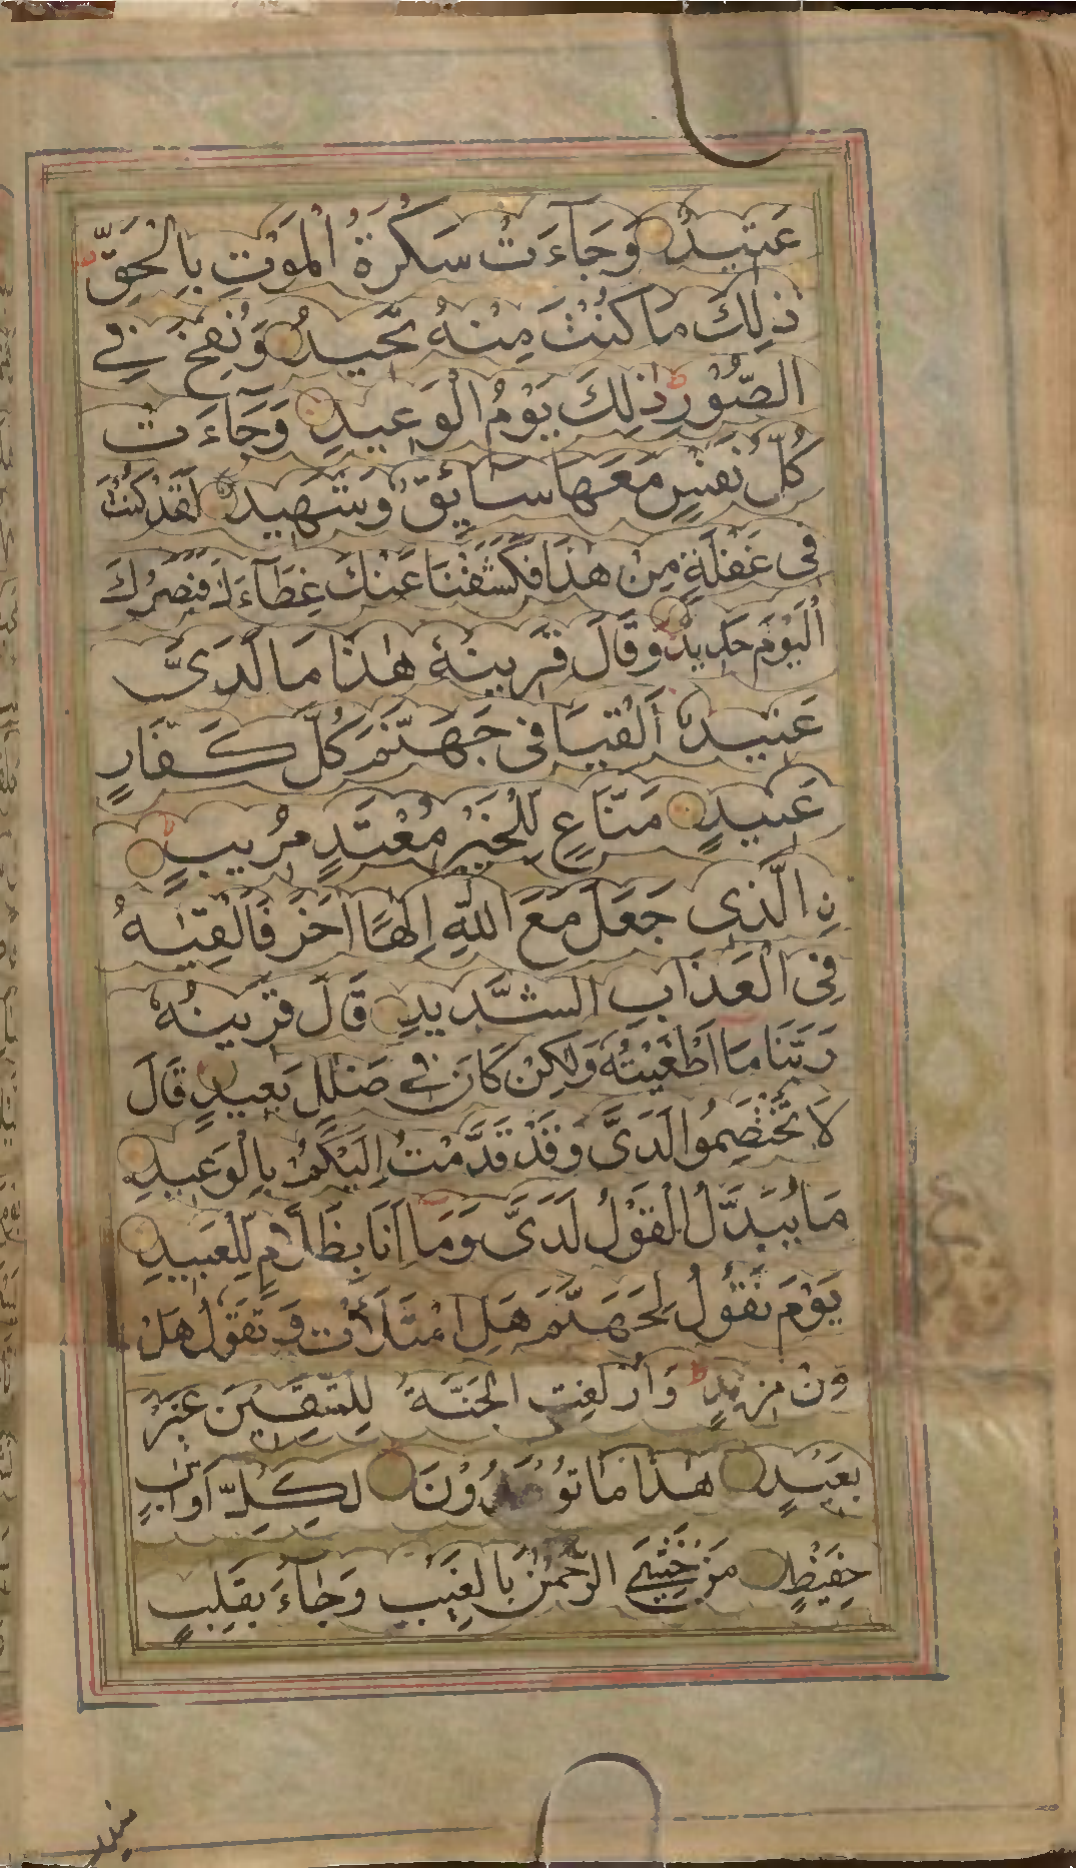 عَتِيدٌ وَجَآءَتْ سَكْرَةُ الْمَوْتِ بِالْحَقِّ
ذٰلِكَ مَا كُنْتَ مِنْهُ تَحِيدُ وَنُفِخَ فِي
الصُّوْرِ ذٰلِكَ يَوْمُ الْوَعِيدِ وَجَآءَتْ
كُلُّ نَفْسٍ مَعَهَا سَآئِقٌ وَشَهِيدٌ لَقَدْ كُنْتَ
فِي غَفْلَةٍ مِنْ هٰذَا فَكَشَفْنَا عَنْكَ غِطَآءَكَ فَبَصَرُكَ
الْيَوْمَ حَدِيدٌ وَقَالَ قَرِينُهُ هٰذَا مَا لَدَيَّ
عَتِيدٌ اَلْقِيَا فِي جَهَنَّمَ كُلَّ كَفَّارٍ
عَنِيدٍ مَنَّاعٍ لِلْخَيْرِ مُعْتَدٍ مُرِيبٍ
نِ الَّذِي جَعَلَ مَعَ اللّٰهِ اِلٰهًا اٰخَرَ فَاَلْقِيٰهُ
فِي الْعَذَابِ الشَّدِيدِ قَالَ قَرِينُهُ
رَبَّنَا مَا اَطْغَيْتُهُ وَلٰكِنْ كَانَ فِي ضَلٰلٍ بَعِيدٍ قَالَ
لَا تَخْتَصِمُوا لَدَيَّ وَقَدْ قَدَّمْتُ اِلَيْكُمْ بِالْوَعِيدِ
مَا يُبَدَّلُ الْقَوْلُ لَدَيَّ وَمَا اَنَا بِظَلَّامٍ لِلْعَبِيدِ
يَوْمَ نَقُولُ لِجَهَنَّمَ هَلِ امْتَلَأْتِ وَتَقُولُ هَلْ
مِنْ مَزِيدٍ وَاُزْلِفَتِ الْجَنَّةُ لِلْمُتَّقِينَ غَيْرَ
بَعِيدٍ هٰذَا مَا تُوعَدُوْنَ لِكُلِّ اَوَّابٍ
حَفِيظٍ مَنْ خَشِيَ الرَّحْمٰنَ بِالْغَيْبِ وَجَآءَ بِقَلْبٍ